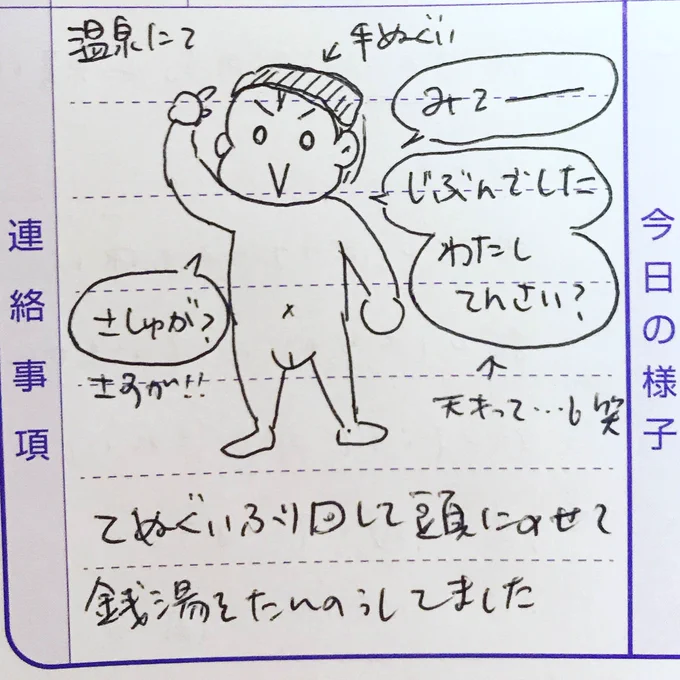 連絡事項
今日の様子
温泉にて
手ぬぐい
みてー
じぶんでした
わたし
てんさい?
さしゅが?
さすが!!
天才って…笑
てぬぐいふり回して頭にのせて
銭湯をたんのうしてました